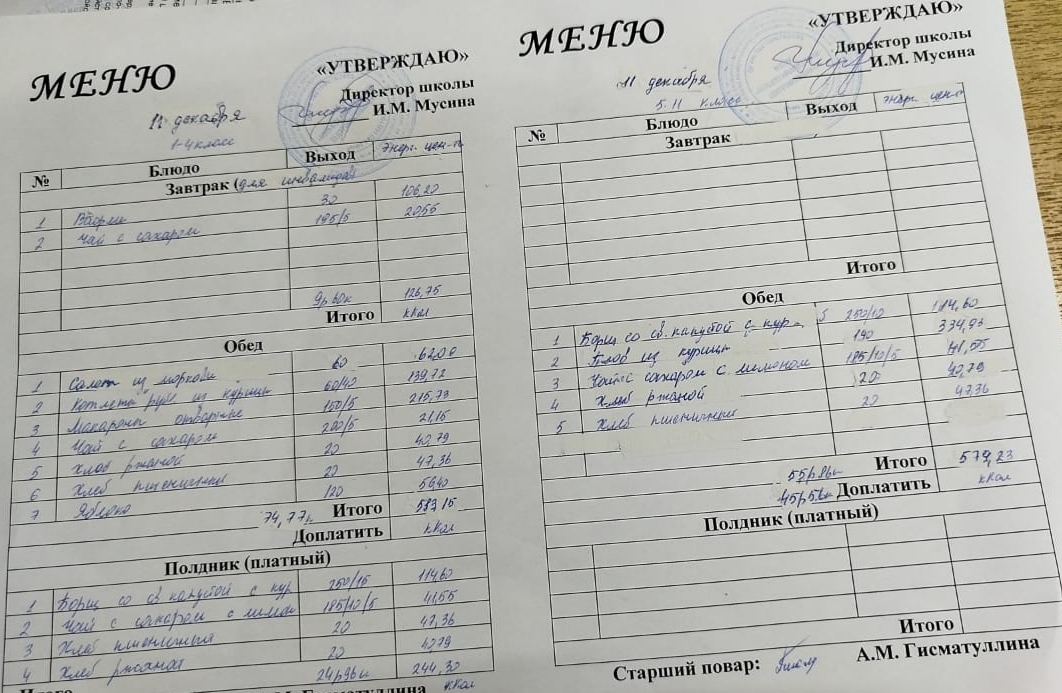 МЕНЮ
«УТВЕРЖДАЮ»
Директор школы
И.М. Мусина
11 декабря
1-4 класс
№ Блюдо Выход Энерг. цен-ть
Завтрак (для инвалидов)
1 Вафли 30 106,20
2 Чай с сахаром 195/5 2055
9р 60к 126,75
Итого ккал
Обед
1 Салат из моркови 60 6200
2 Котлета руб из курицы 60/40 139,72
3 Макароны отварные 150/5 215,73
4 Чай с сахаром 200/5 21,15
5 Хлеб ржаной 20 40,79
6 Хлеб пшеничный 20 47,36
7 Яблоко 120 56,40
74,77к Итого 583 15
Доплатить ккал
Полдник (платный)
1 Борщ со св. капустой с кур 250/15 114,60
2 Чай с сахаром с лимон 185/10/5 41,55
3 Хлеб пшеничный 20 47,36
4 Хлеб ржаной 20 40,79
24р96к 244,30
Итого ккал
Гисматуллина
МЕНЮ
«УТВЕРЖДАЮ»
Директор школы
И.М. Мусина
11 декабря
5-11 класс
№ Блюдо Выход Энерг. цен-ть
Завтрак
Итого
Обед
1 Борщ со св. капустой с кур 250/10 114,60
2 Плов из курицы 190 334,93
3 Чай с сахаром с лимоном 185/10/5 41,55
4 Хлеб ржаной 20 40,79
5 Хлеб пшеничный 20 47,36
55р86к Итого 579,23
45р56к Доплатить ккал
Полдник (платный)
Итого
Старший повар: А.М. Гисматуллина